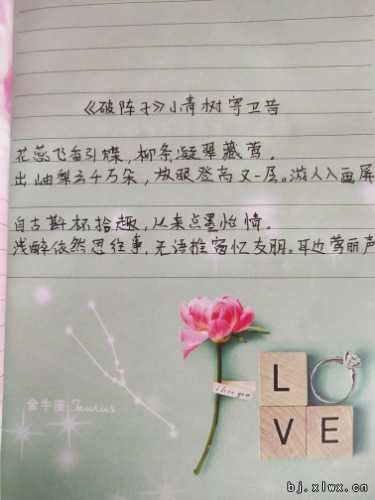 《破阵子》小青树寄卫岳
花蕊飞香引蝶，柳条凝翠藏莺。
出岫梨云千万朵，放眼登高又一层。游人入画屏
自古斟杯拾趣，从来点墨怡情。
浅醉依然思往事，无语推窗忆友朋。耳边莺丽声
金牛座 Taurus
i love you
L
VE
bj.xlwx.cn